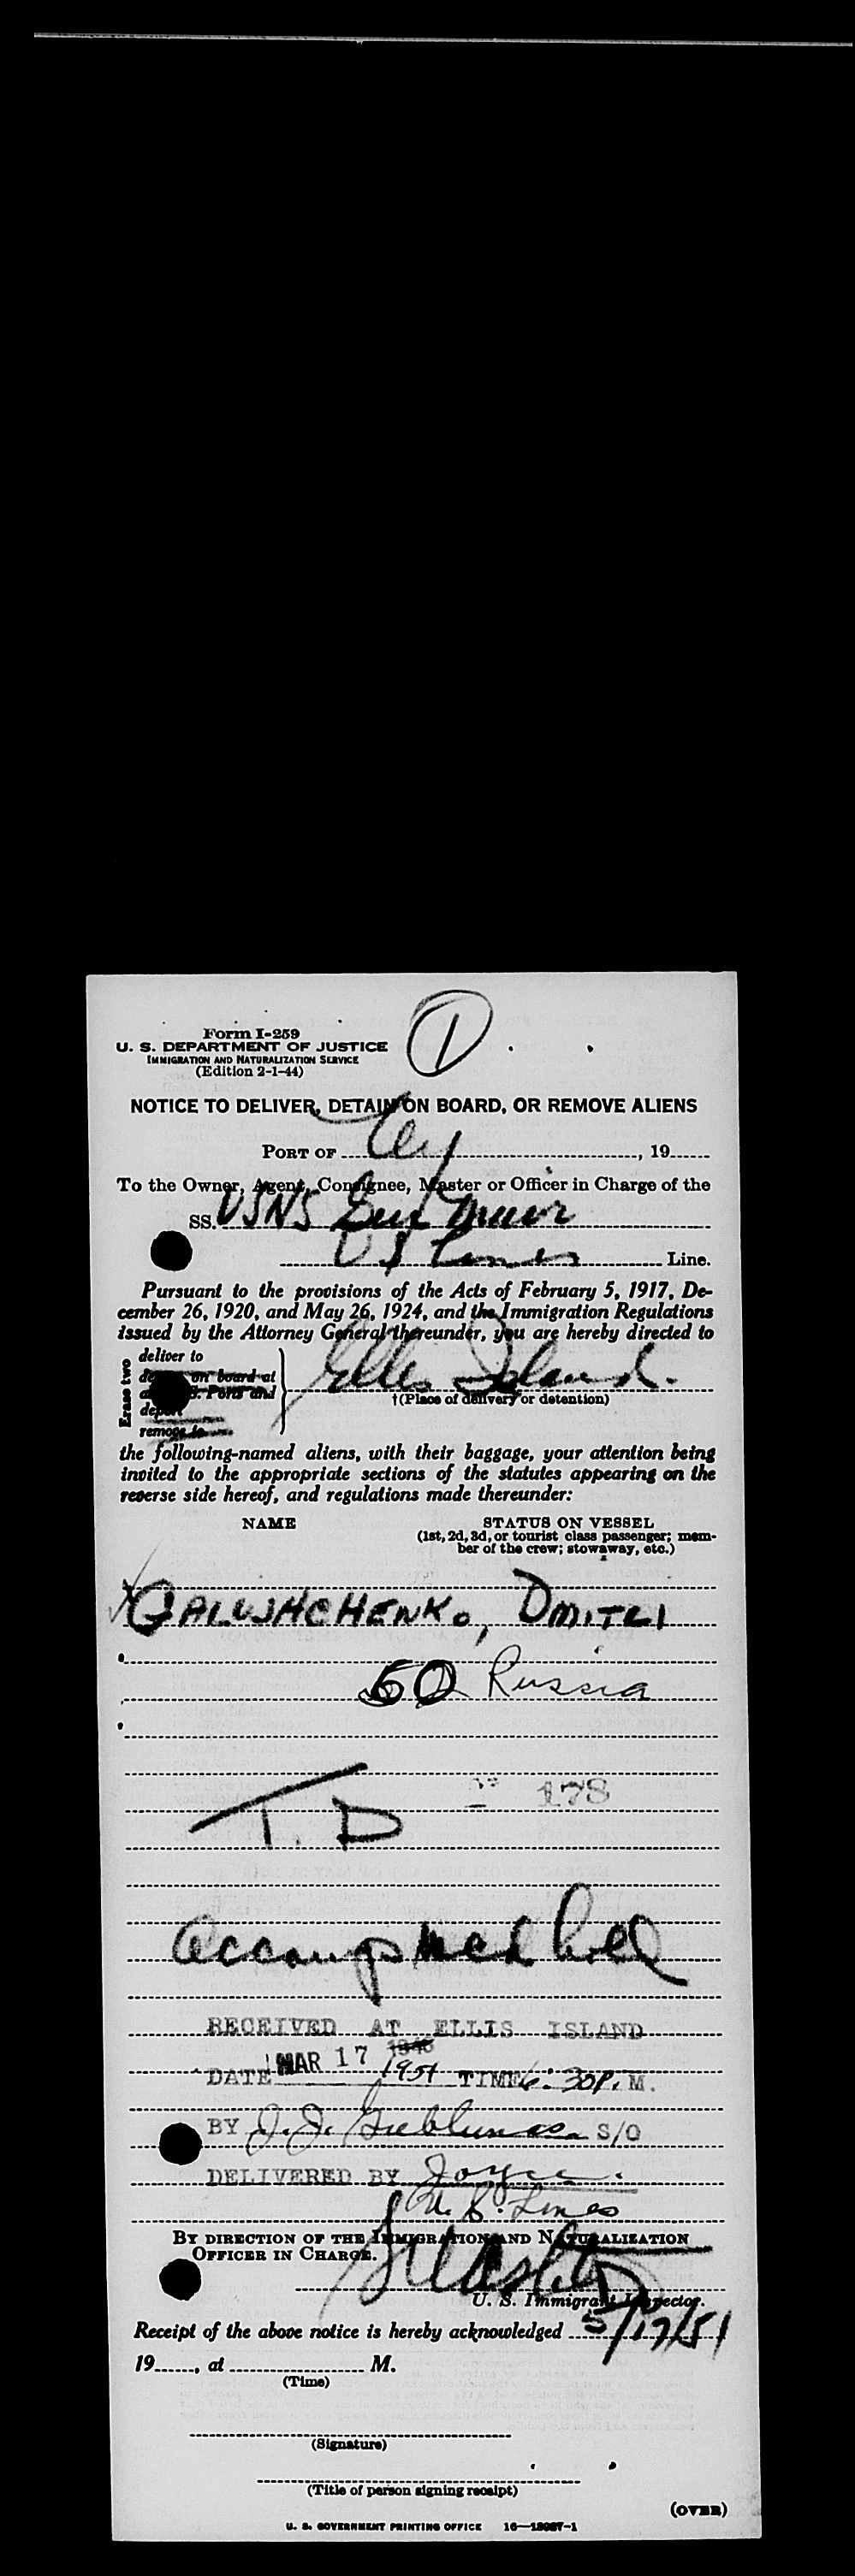 1
Form I-259
U. S. DEPARTMENT OF JUSTICE
IMMIGRATION AND NATURALIZATION SERVICE
(Edition 2-1-44)
NOTICE TO DELIVER, DETAIN ON BOARD, OR REMOVE ALIENS
PORT OF NY, 19
To the Owner, Agent, Consignee, Master or Officer in Charge of the
SS. USNS Gen Muir
U S Lines Line.
Pursuant to the provisions of the Acts of February 5, 1917, De-
cember 26, 1920, and May 26, 1924, and the Immigration Regulations
issued by the Attorney General thereunder, you are hereby directed to
Erase two
deliver to
on board at
Ports and
remove to
Ellis Island.
†(Place of delivery or detention)
the following-named aliens, with their baggage, your attention being
invited to the appropriate sections of the statutes appearing on the
reverse side hereof, and regulations made thereunder:
NAME STATUS ON VESSEL
(1st, 2d, 3d, or tourist class passenger; mem-
ber of the crew; stowaway, etc.)
GALUSHCHENKO, DMITRI
50 Russia
T. D 178
RECEIVED AT ELLIS ISLAND
DATE MAR 17 1951 TIME 6:30 P. M.
BY J. J. S/O
DELIVERED BY Joyce
U. S. Lines
BY DIRECTION OF THE IMMIGRATION AND NATURALIZATION
OFFICER IN CHARGE.
U. S. Immigrant Inspector.
Receipt of the above notice is hereby acknowledged 5/17/51
19, at M.
(Time)
(Signature)
(Title of person signing receipt)
(OVER)
U. S. GOVERNMENT PRINTING OFFICE